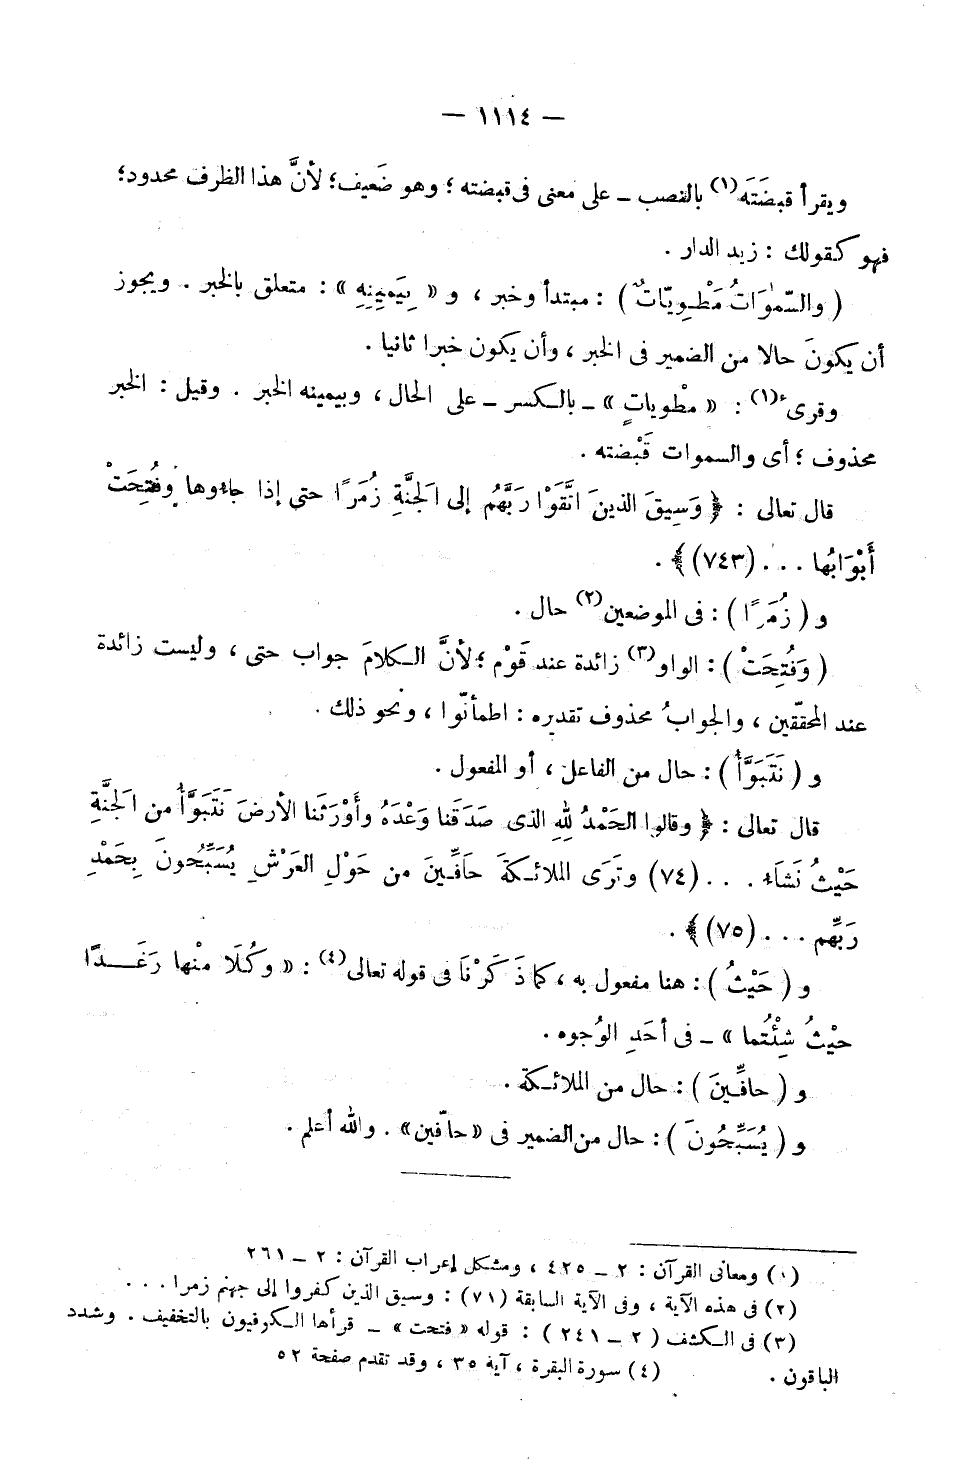 — ١١١٤ —
ويقرأ قبضَتَه(١) بالنصب – على معنى فى قبضته ؛ وهو ضَعيف؛ لأنَّ هذا الظرف محدود؛
فهو كقولك : زيد الدار .
( والسّمٰوَاتُ مَطْوِيّاتٌ ) : مبتدأ وخبر ، و « بِيَمِينِهِ » : متعلق بالخبر . ويجوز
أن يكونَ حالا من الضمير فى الخبر ، وأن يكون خبرا ثانيا .
وقرىء(١) : « مطْوياتٍ » – بالكسر – على الحال ، وبيمينه الخبر . وقيل : الخبر
محذوف ؛ أى والسموات قَبْضَته .
قال تعالى : ﴿ وَسِيقَ الذينَ اتَّقَوْا رَبَّهُم إلى الجَنَّةِ زُمَرًا حتى إذا جاءوها وفُتِحَتْ
أَبْوَابُها . . . (٧٤٣) ﴾ .
و ( زُمَرًا ) : فى الموضعين(٢) حال .
( وَفُتِحَتْ ) : الواو(٣) زائدة عند قَوْم ؛ لأنَّ الكلامَ جواب حتى ، وليست زائدة
عند المحقّقين ، والجوابُ محذوف تقديره : اطمأنّوا ، ونحو ذلك .
و ( نَتَبَوَّأُ ) : حال من الفاعل ، أو المفعول .
قال تعالى : ﴿ وقالوا الحَمْدُ لِلهِ الذى صَدَقَنا وَعْدَهُ وأَوْرَثَنا الأرضَ نَتَبَوَّأُ من الجَنَّةِ
حَيْثُ نَشَاء . . . (٧٤) وتَرَى الملائكةَ حَافِّينَ من حَوْلِ العَرْشِ يُسَبِّحُونَ بِحَمْدِ
رَبِّهم . . . (٧٥) ﴾ .
و ( حَيْثُ ) : هنا مفعول به ، كما ذَكَرْنَا فى قوله تعالى(٤) : « وكُلَا منْها رَغَدًا
حيْثُ شِئْتُما » – فى أحَدِ الوُجوه .
و ( حافِّينَ ) : حال من الملائكة .
و ( يُسَبِّحُونَ ) : حال من الضمير فى «حافّين» . والله أعلم .
(١) ومعانى القرآن : ٢ – ٤٢٥ ، ومشكل إعراب القرآن : ٢ – ٢٦١
(٢) فى هذه الآية ، وفى الآية السابقة (٧١) : وسيق الذين كفروا إلى جهنم زمرا . . .
(٣) فى الكشف ( ٢ – ٢٤١ ) : قوله « فتحت » – قرأها الكوفيون بالتخفيف . وشدد
الباقون . (٤) سورة البقرة ، آية ٣٥ ، وقد تقدم صفحة ٥٢